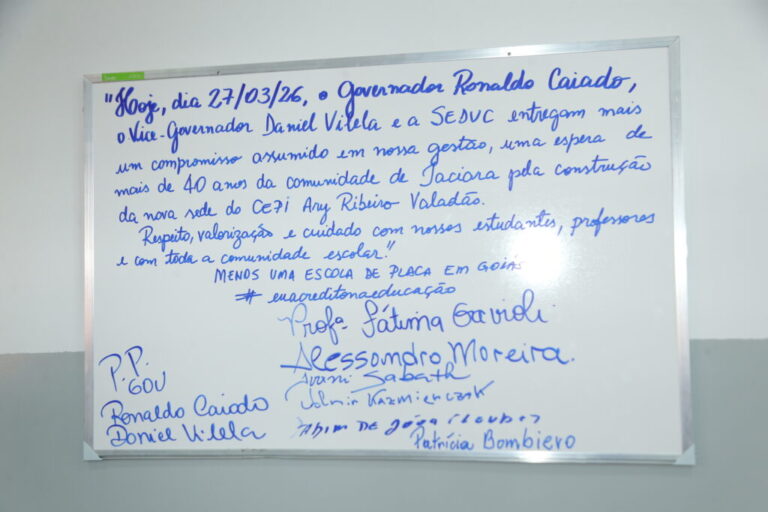 "Hoje, dia 27/03/26, o Governador Ronaldo Caiado,
o Vice-Governador Daniel Vilela e a SEDUC entregam mais
um compromisso assumido em nossa gestão, uma espera de
mais de 40 anos da comunidade de Jaciara pela construção
da nova sede do CEPI Ary Ribeiro Valadão.
Respeito, valorização e cuidado com nossos estudantes, professores
e com toda a comunidade escolar."
MENOS UMA ESCOLA DE PLACA EM GOIÁS
# euacreditonaeducação
Profª. Fátima Gavioli
Alessandro Moreira.
P.P.
GOV
Sabath
Kazmierczak
Ronaldo Caiado
Daniel Vilela
DE
Patrícia Bombiero